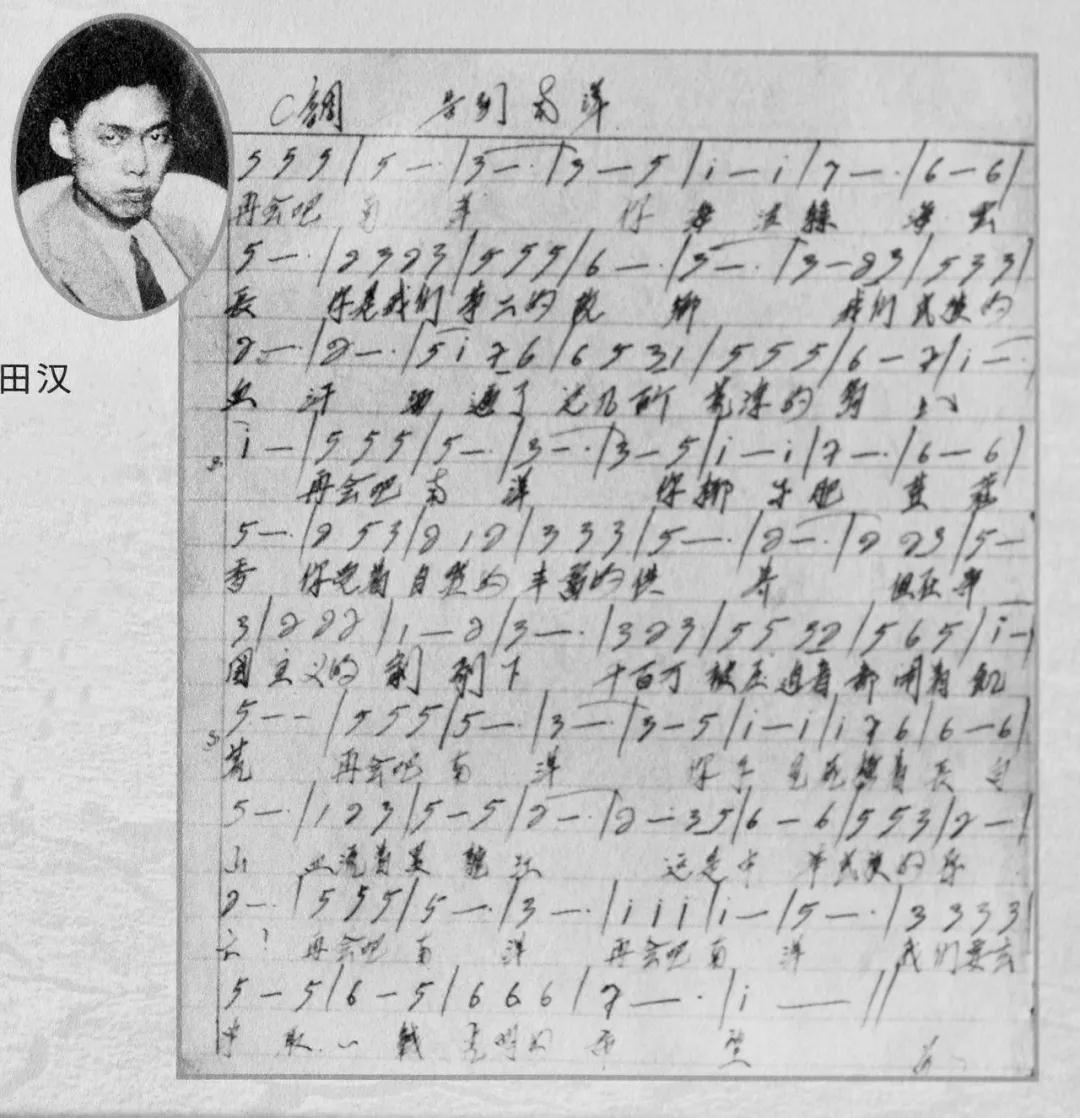 田汉
C調 告别南洋
5 5 5 | 5 — · | 3 — · | 3 — 5 | i — i | 7 — · | 6 — 6 |
再会吧 南 洋 你 海 波綠 海 云
5 — · | 2 3 2 3 | 5 5 5 | 6 — · | 3 — · | 3 — 2 3 | 5 3 3 |
長 你是我们 第二的 故 鄉 我们 民族的
2 — · | 2 — · | 5 i 7 6 | 6 5 3 1 | 5 5 5 | 6 — 7 | i — ·
血 汗 洒 遍了 这几百个 荒凉的 島 上
i — | 5 5 5 | 5 — · | 3 — · | 3 — 5 | i — i | 7 — · | 6 — 6 |
再会吧 南 洋 你椰 子肥 荳 蔻
5 — · | 2 5 3 | 2 1 2 | 3 3 3 | 5 — · | 2 — · | 2 2 3 | 5 —
香 你受着 自然的 丰富的 供 养 但在帝
3 | 2 2 2 | 1 — 2 | 3 — · | 3 2 3 | 5 5 3 2 | 5 6 5 | i —
國 主义的 剥 削下 千百万 被压迫者 都闹着飢
5 — — | 5 5 5 | 5 — · | 3 — · | 3 — 5 | i — i | i 7 6 | 6 — 6 |
荒 再会吧 南 洋 你不 見尸横着 長 白
5 — · | 1 2 3 | 5 — 5 | 2 — · | 2 — 3 5 | 6 — 6 | 5 5 3 | 2 — |
山 血流着 黑 龍江 这是中 华民族的 存
2 — · | 5 5 5 | 5 — · | 3 — · | i i i | i — | 5 — · | 3 3 3 3
亡! 再会吧 南 洋 再会吧 南 洋 我们要去
5 — 5 | 6 — 5 | 6 6 6 | 7 — · | i — ||
争 取 一 线 光明的 希 望